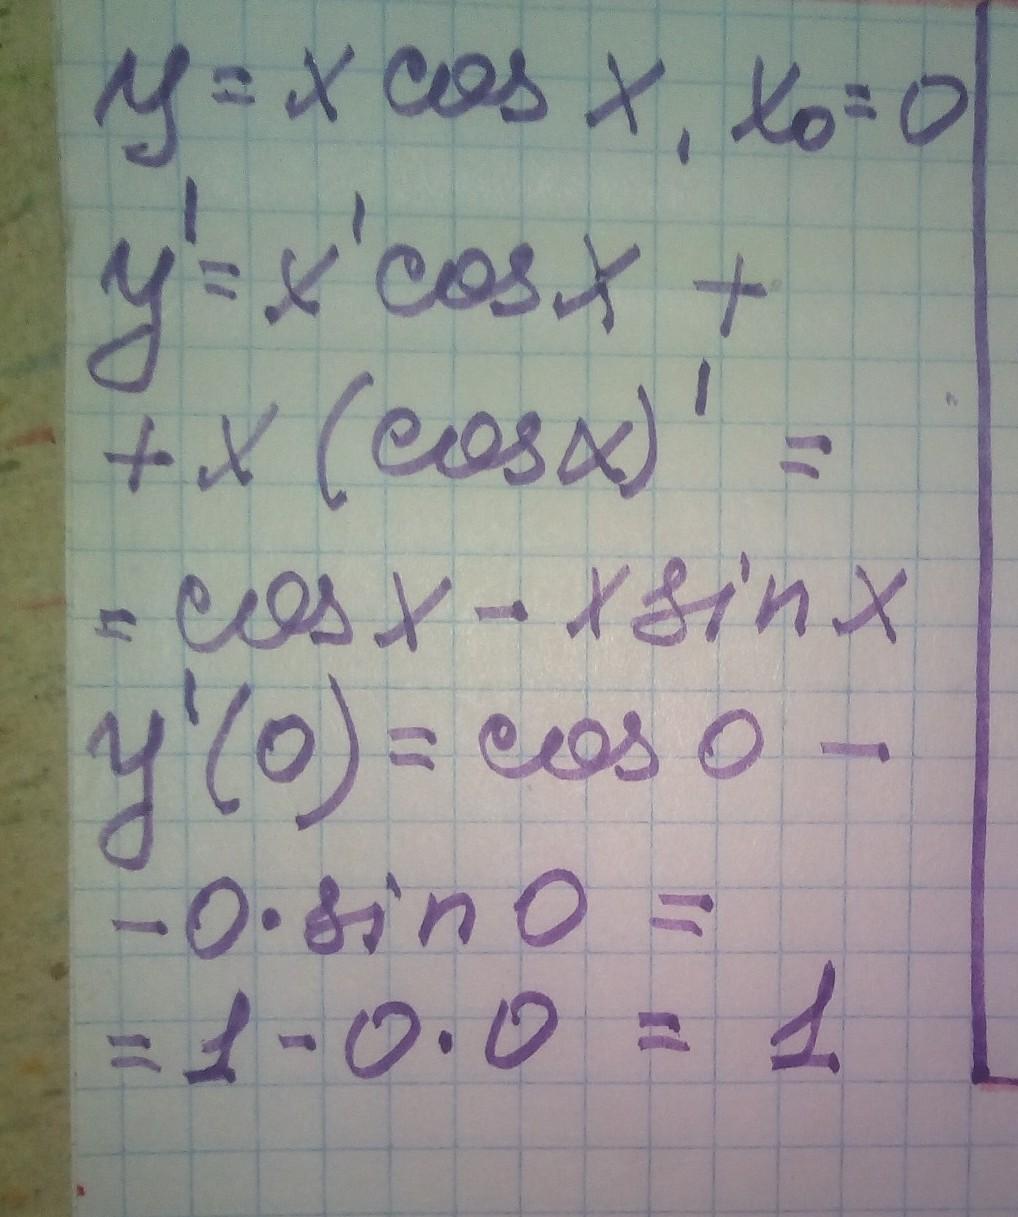 y = x cos x, x₀ = 0
y' = x' cos x +
+ x (cos x)' =
= cos x - x sin x
y'(0) = cos 0 -
- 0 · sin 0 =
= 1 - 0 · 0 = 1